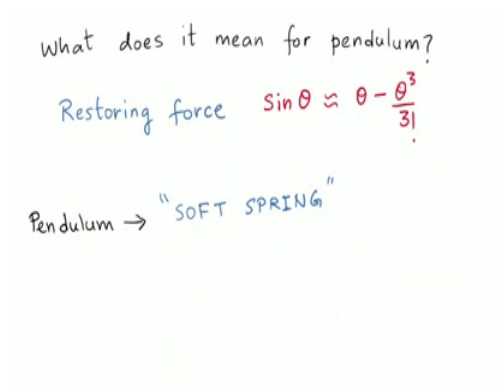 What does it mean for pendulum?
Restoring force sin θ ≈ θ - θ³/3!
Pendulum → "SOFT SPRING"